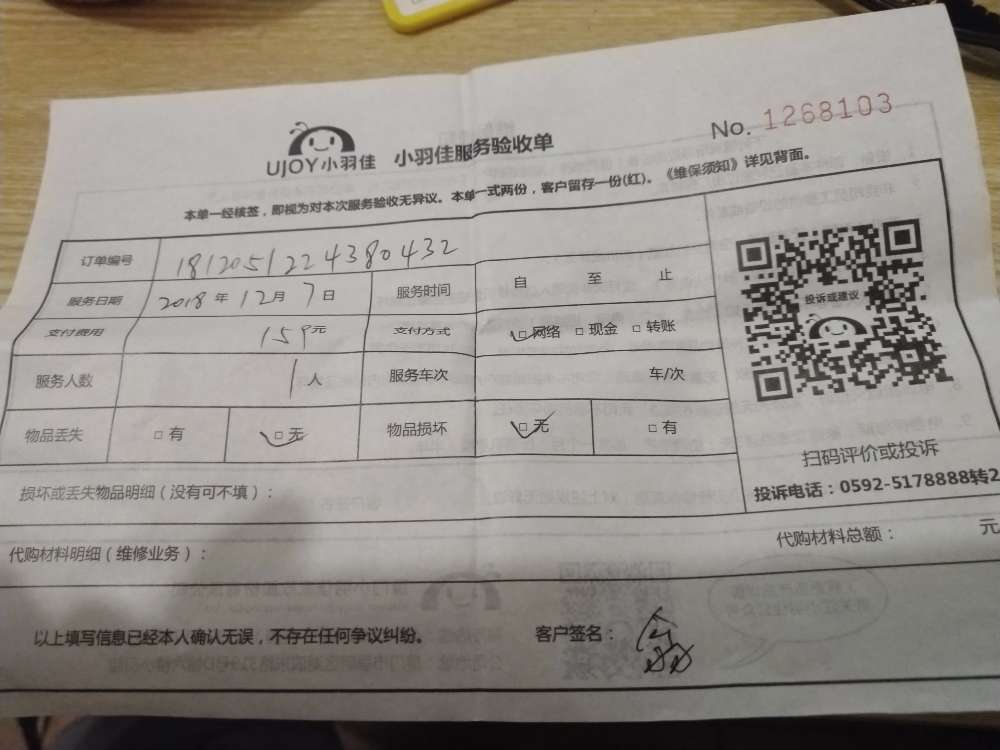 UJOY小羽佳 小羽佳服务验收单
No. 1268103
本单一经核签，即视为对本次服务验收无异议。本单一式两份，客户留存一份(红)。《维保须知》详见背面。
订单编号 1812051224380432
服务日期 2018年12月7日 服务时间 自 至 止
支付费用 159元 支付方式 ☑网络 □现金 □转账
服务人数 1人 服务车次 车/次
物品丢失 □有 ☑无 物品损坏 ☑无 □有
投诉或建议
扫码评价或投诉
投诉电话：0592-5178888转2
损坏或丢失物品明细（没有可不填）：
代购材料明细（维修业务）：
代购材料总额： 元
以上填写信息已经本人确认无误，不存在任何争议纠纷。 客户签名：